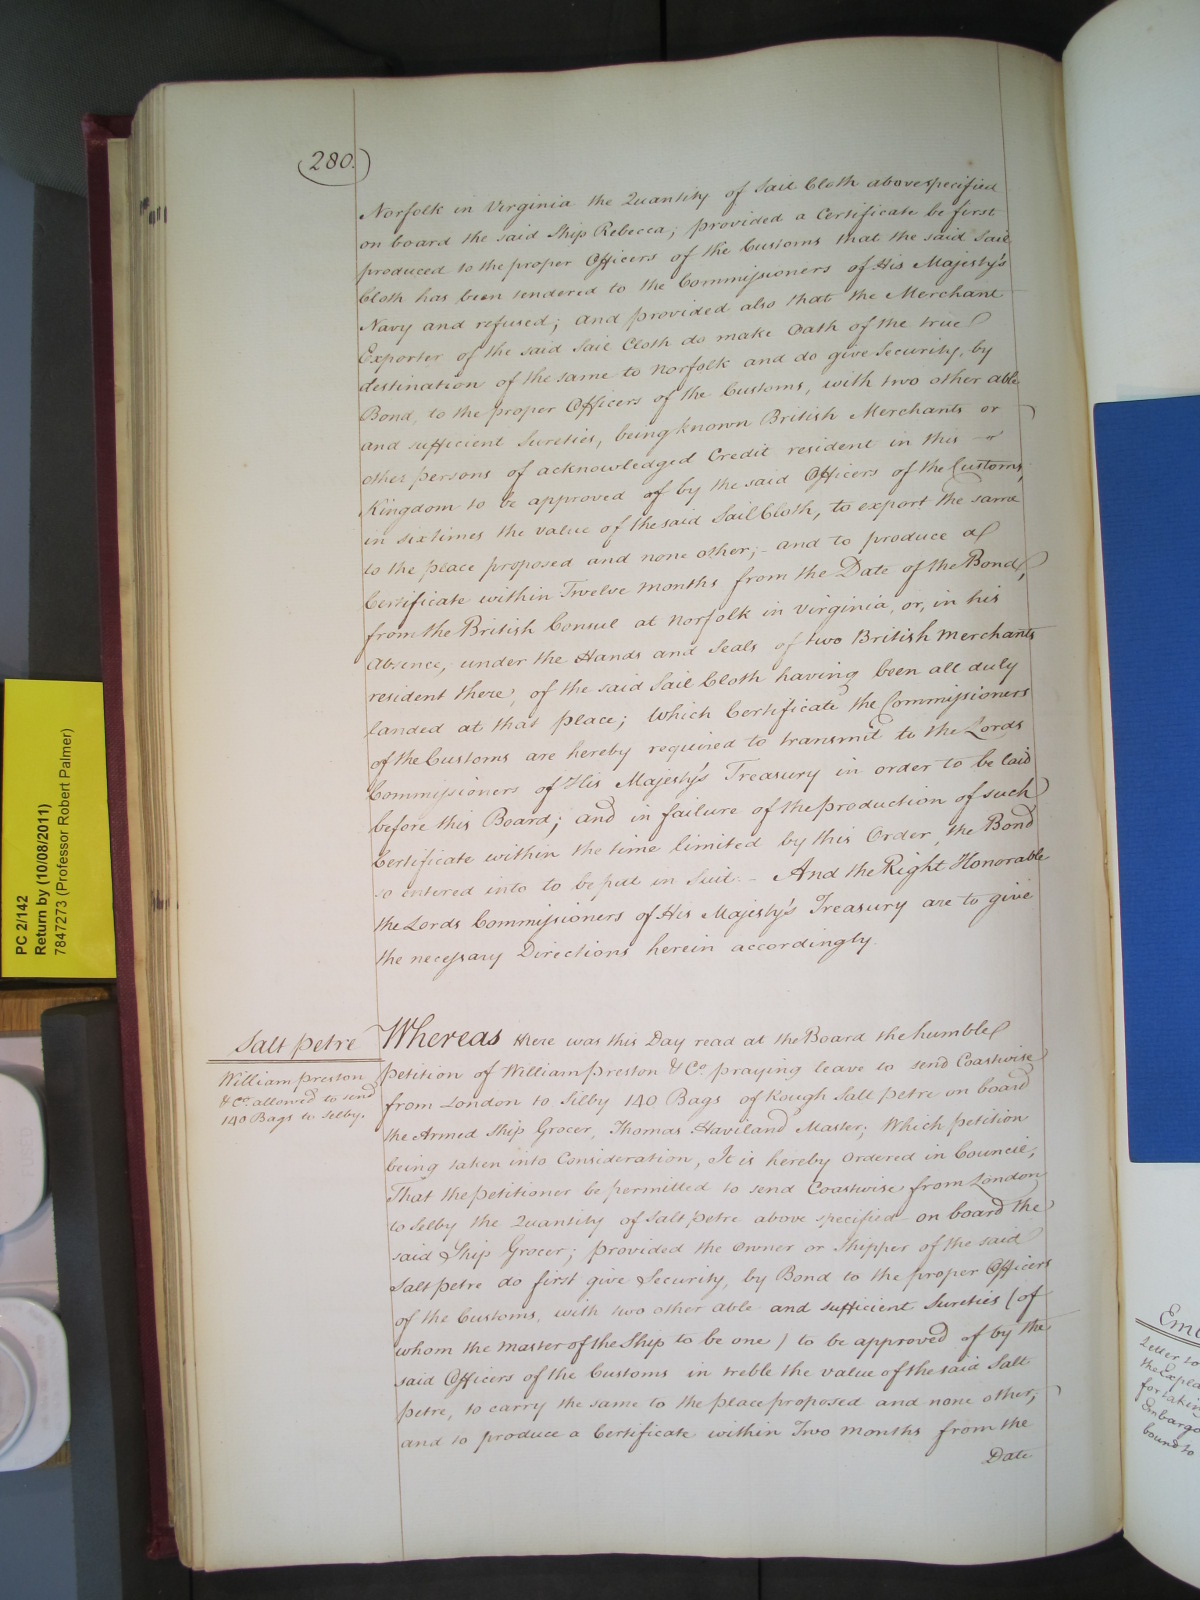 280.
Norfolk in Virginia the Quantity of Sail Cloth abovespecified
on board the said Ship Rebecca; provided a Certificate be first
produced to the proper Officers of the Customs that the said Sail
Cloth has been tendered to the Commissioners of His Majesty's
Navy and refused; and provided also that the Merchant
Exporter of the said Sail Cloth do make Oath of the true
destination of the same to Norfolk and do give Security, by
Bond, to the proper Officers of the Customs, with two other able
and sufficient Sureties, being known British Merchants or
other persons of acknowledged Credit resident in this
Kingdom to be approved of by the said Officers of the Customs,
in six times the value of the said Sail Cloth, to export the same
to the place proposed and none other; - and to produce a
Certificate within Twelve Months from the Date of the Bond,
from the British Consul at Norfolk in Virginia, or, in his
Absence, under the Hands and Seals of two British Merchants
resident there, of the said Sail Cloth having been all duly
landed at that place; Which Certificate the Commissioners
of the Customs are hereby required to transmit to the Lords
Commissioners of His Majesty's Treasury in order to be laid
before this Board; and in failure of the production of such
Certificate within the time limited by this Order, the Bond
so entered into to be put in Suit. - And the Right Honorable
the Lords Commissioners of His Majesty's Treasury are to give
the necessary Directions herein accordingly.
Salt petre
William Preston
& Co. allowed to send
140 Bags to Selby.
Whereas there was this Day read at the Board the humble
petition of William Preston & Co. praying leave to send Coastwise
from London to Selby 140 Bags of Rough Salt petre on board
the Armed Ship Grocer, Thomas Haviland Master; Which petition
being taken into Consideration, It is hereby Ordered in Council,
That the petitioner be permitted to send Coastwise from London
to Selby the Quantity of Salt petre above specified on board the
said Ship Grocer; provided the Owner or Shipper of the said
Salt petre do first give Security, by Bond to the proper Officers
of the Customs, with two other able and sufficient Sureties (of
whom the Master of the Ship to be one) to be approved of by the
said Officers of the Customs in treble the value of the said Salt
petre, to carry the same to the place proposed and none other;
and to produce a Certificate within Two Months from the
Date
PC 2/142
Return by (10/08/2011)
7847273 (Professor Robert Palmer)
Letter to
Embargo
bound to